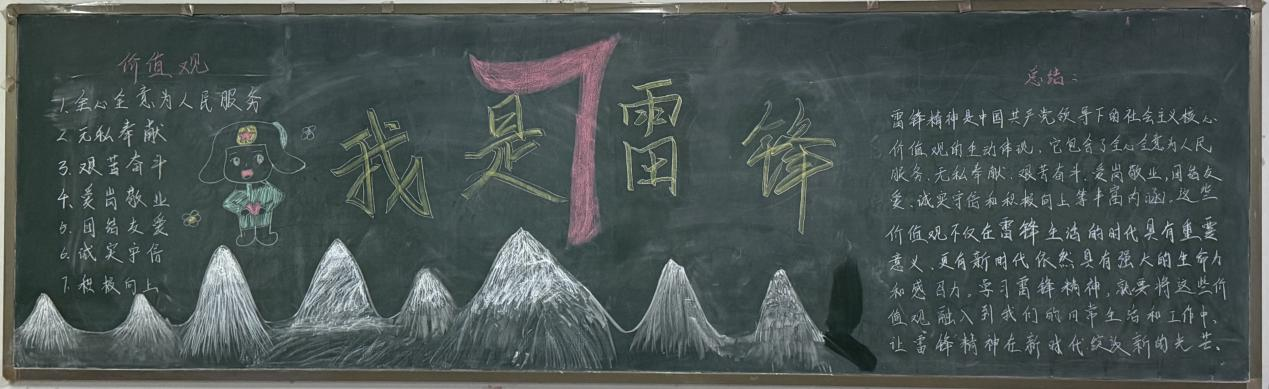 价值观
1.全心全意为人民服务
2.无私奉献
3.艰苦奋斗
4.爱岗敬业
5.团结友爱
6.诚实守信
7.积极向上
我是7雷锋
总结：
雷锋精神是中国共产党领导下的社会主义核心
价值观的生动体现。它包含了全心全意为人民
服务、无私奉献、艰苦奋斗、爱岗敬业、团结友
爱、诚实守信和积极向上等丰富内涵。这些
价值观不仅在雷锋生活的时代具有重要
意义，更在新时代依然具有强大的生命力
和感召力。学习雷锋精神，就要将这些价
值观融入到我们的日常生活和工作中，
让雷锋精神在新时代绽放新的光芒。